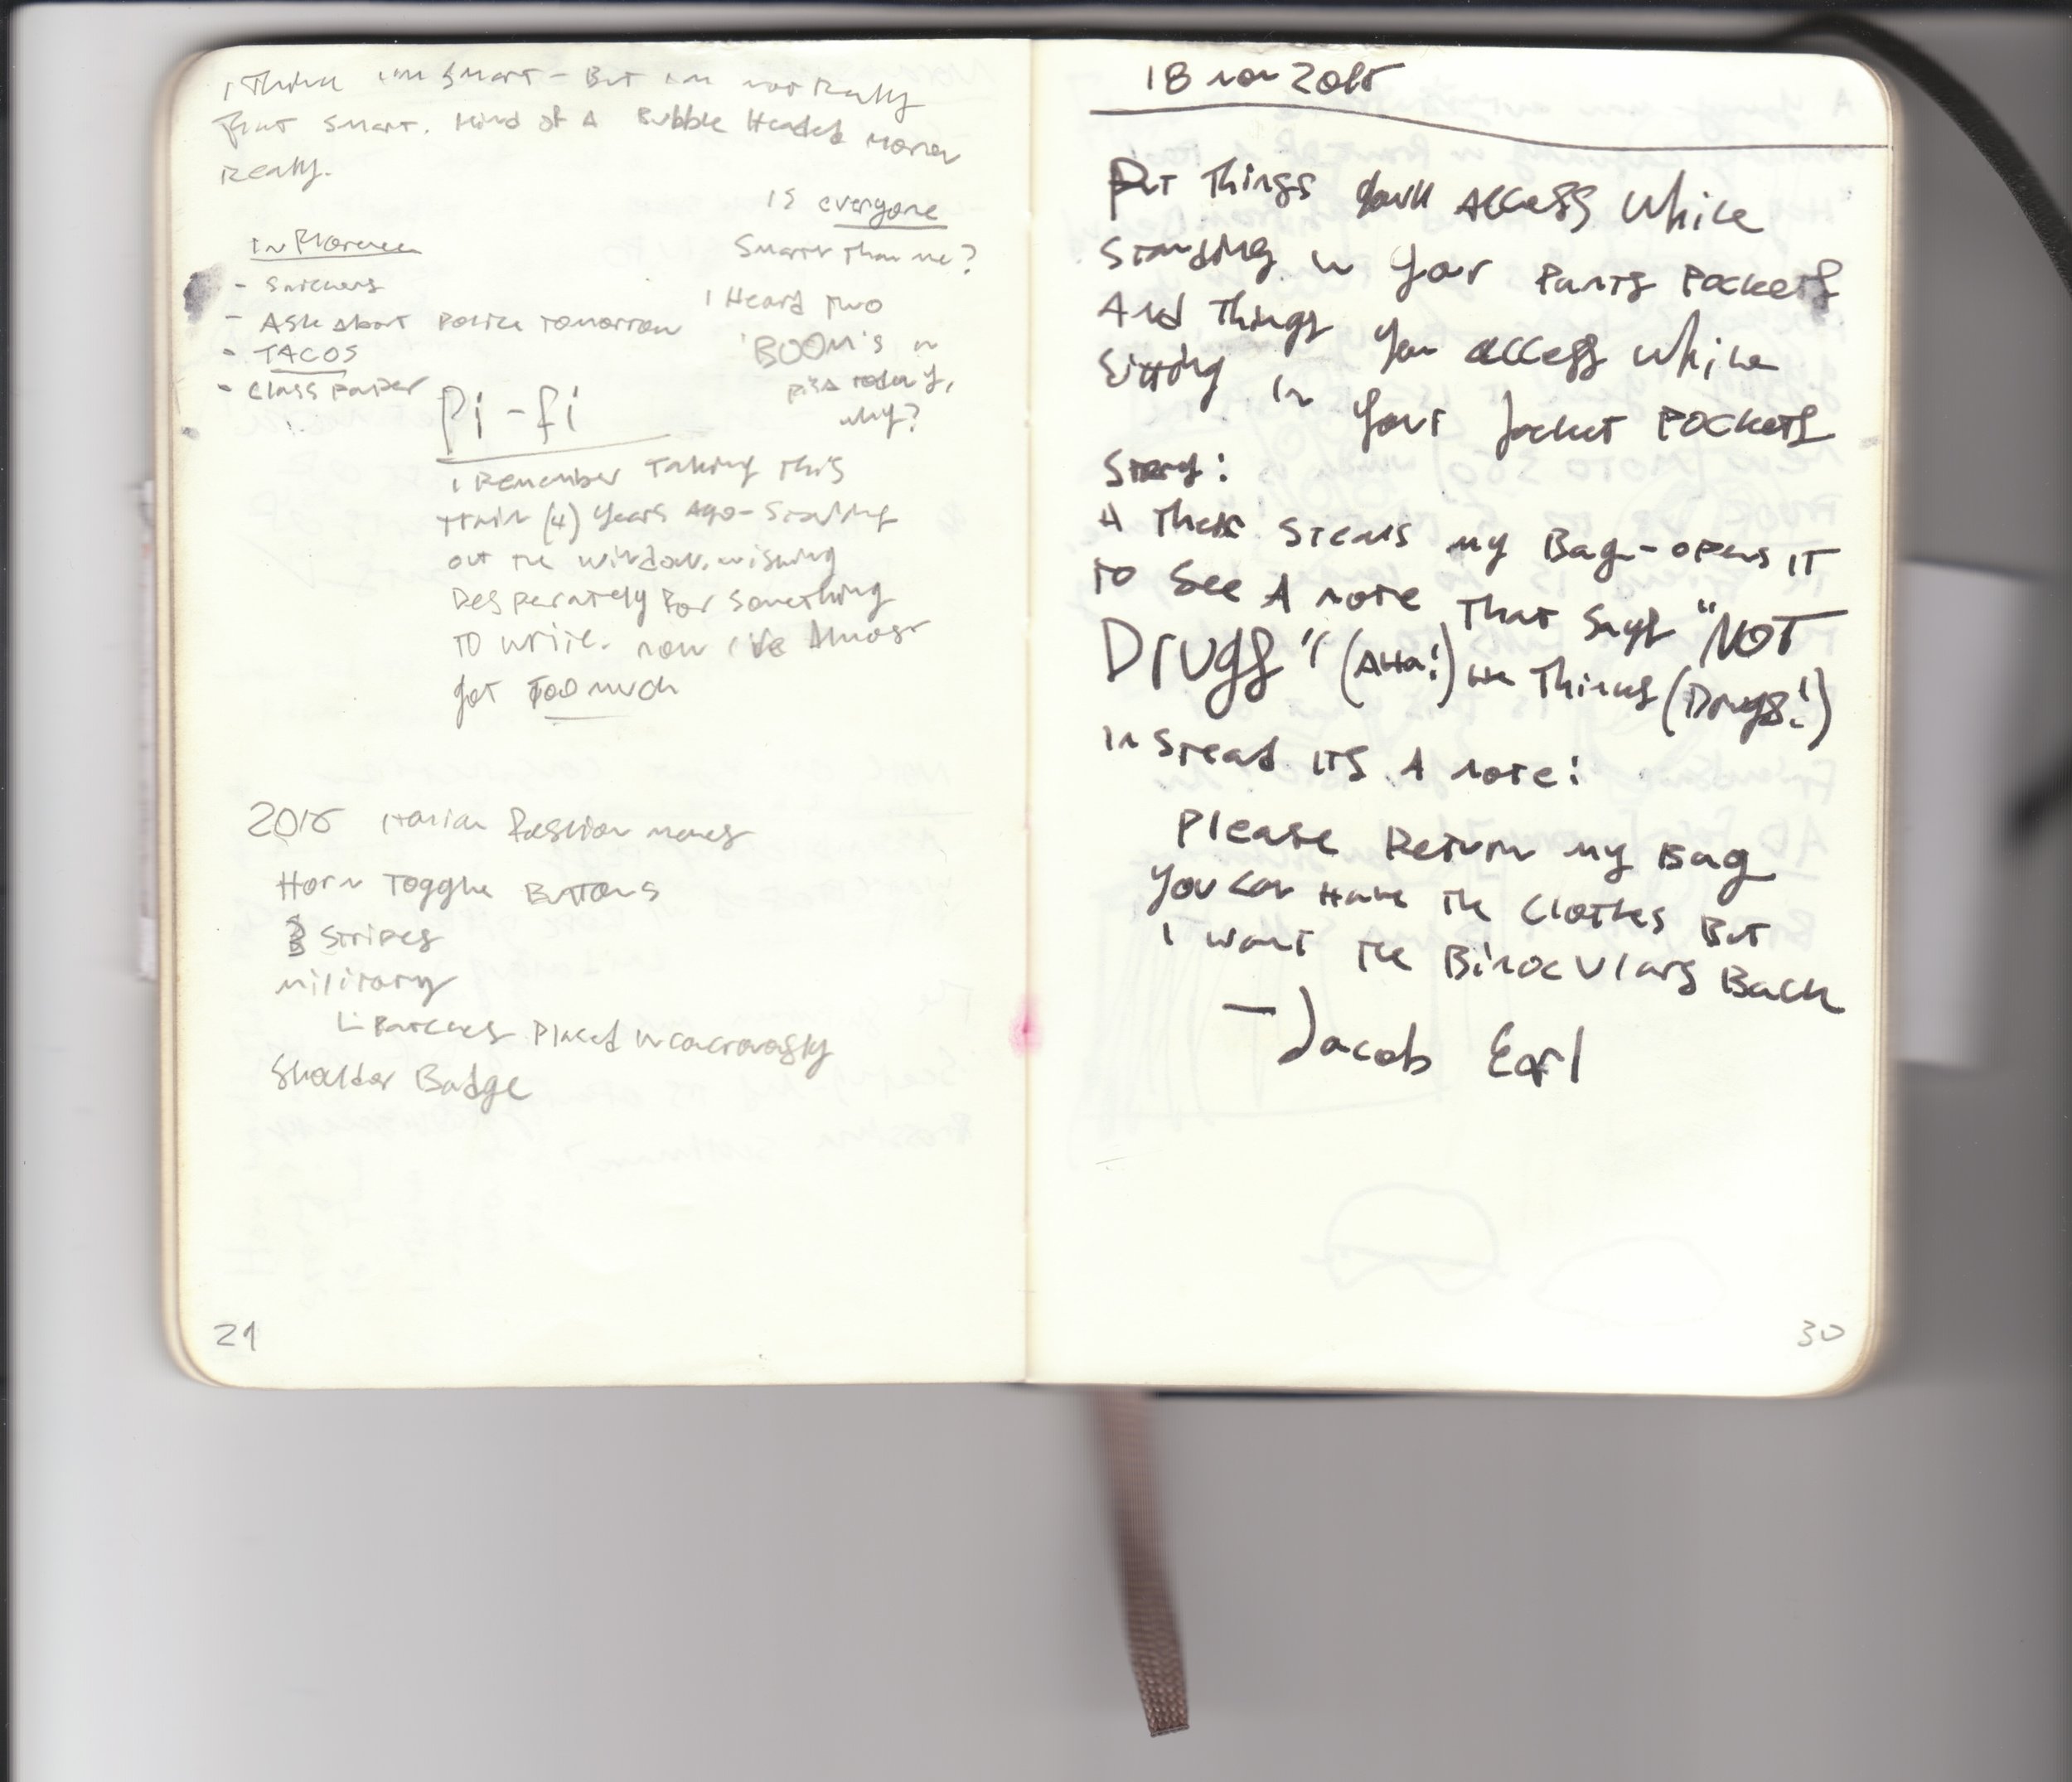 I Think I'm Smart - But I'm not Really
That smart. Kind of A Bubble Headed Moron
Really.
In Florence
- Snickers
- Ask About Police Tomorrow
- TACOS
- Class paper
Is everyone
Smarter Than me?
I Heard Two
"BOOM"s in
Pisa today,
why?
Pi-fi
I Remember Taking This
train (4) years Ago - Staring
out the window, wishing
Desperately For Something
TO write. now I've Almost
got Too much
Italian Fashion
Horn Toggle Buttons
3 Stripes
military
Placed
Shoulder Badge
29
18 nov 2015
Put Things you'll Access While
Standing in your Pants Pockets
And Things you access while
Sitting in your Jacket Pockets
Story:
A Thief Steals my Bag - opens IT
TO See A note That Says "NOT
Drugs" (AHA!) He Thinks (Drugs!)
Instead ITS A note:
Please Return my Bag
You can Have The Clothes But
I want The Binoculars Back
- Jacob Earl
30